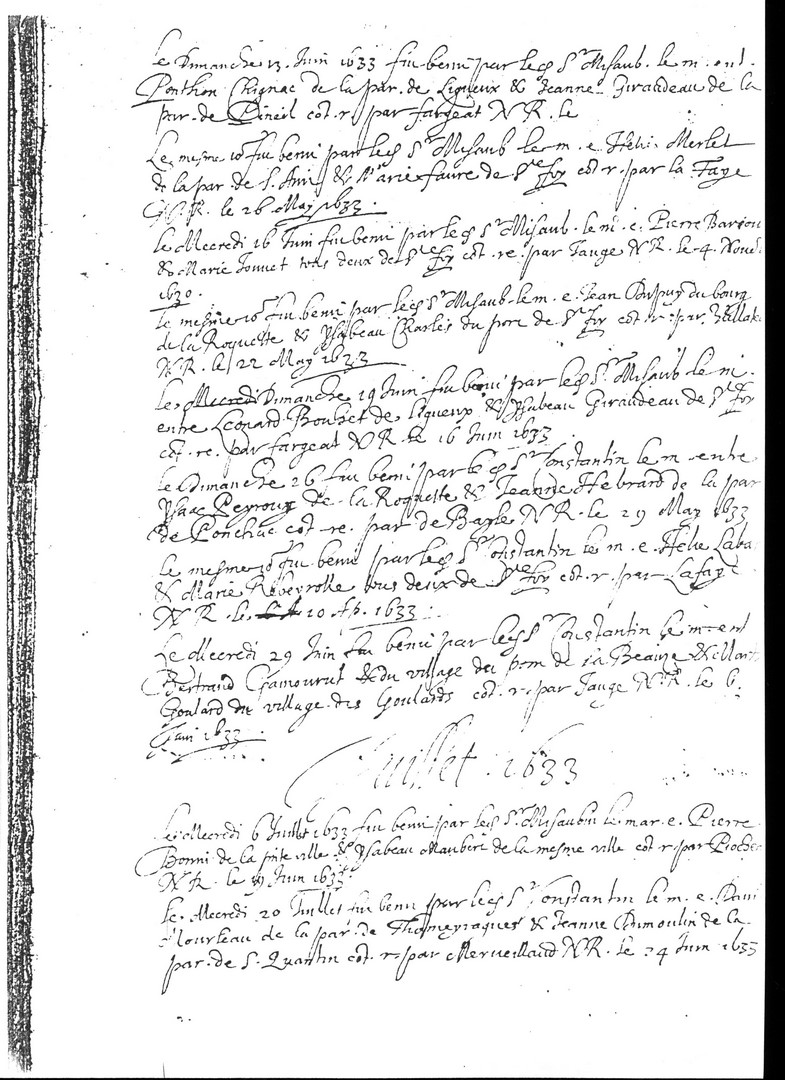 Le Dimanche 13 Juin 1633 fut beni par led Sr Misaub. le m. ent.
Ponthon Chignac de la par. de Ligueux & Jeanne Giraudeau de la
par. de Pineil cot. r. par fargeat N R. le
Le mesme jo. fut beni par led Sr Misaub le m. e. Helie Merlet
de la par. de S. & Marie faure de Ste foy cot. r. par la Faye
N. R. le 26 May 1633.
le Mecredi 16 Juin fut beni par led Sr Misaub. le m. e. Pierre
& Marie Jonuet tous deux de Ste foy cot. re. par Jauge N R. le 4. Nove
1630.
le mesme jo. fut beni par led Sr Misaub. le m. e. Jean Dupuy du bourg
de la Roquette & Ysabeau Charles du port de Ste foy cot. r. par.
N R. le 22 May 1633
le Mecredi Dimanche 19 Juin fut beni par led Sr. Misaub le m.
entre Leonard Bouhet de Ligueux & Ysabeau Giraudeau de Ste foy
cot. re. par fargeat N R. le 16 Juin 1633
le Dimanche 26 fut beni par led Sr Constantin le m entre
Ysaac Peyroux de la Roquette & Jeanne Hebrard de la par
de Ponchac cot. re. par de Bayle N R. le 29 May 1633
le mesme jo. fut beni par led Sr Constantin le m. e. Helie Laba
& Marie Rebeyrolle tous deux de Ste foy cot. r. par Lafaye
N R. le 20 Ap. 1633.
Le Mecredi 29 Juin fut beni par led Sr Constantin le m. ent
Bertrand Gamourut du village de la Beauze &
Goulard du village des Goulards cot. r. par Jauge N R. le 6.
1633
Juillet. 1633
le Mecredi 6 Juillet 1633 fut beni par led Sr. Misaubin le mar. e. Pierre
Bonni de la pnte ville & Ysabeau Maubere de la mesme ville cot. r. par
N R. le 19 Juin 1633.
le Mecredi 20 Juillet fut beni par led Sr Constantin le m. e.
Mourleau de la par. de Thomeyragues & Jeanne Dumoulin de la
par. de S. Quantin cot. r. par Merveillaud N R. le 24 Juin 1633